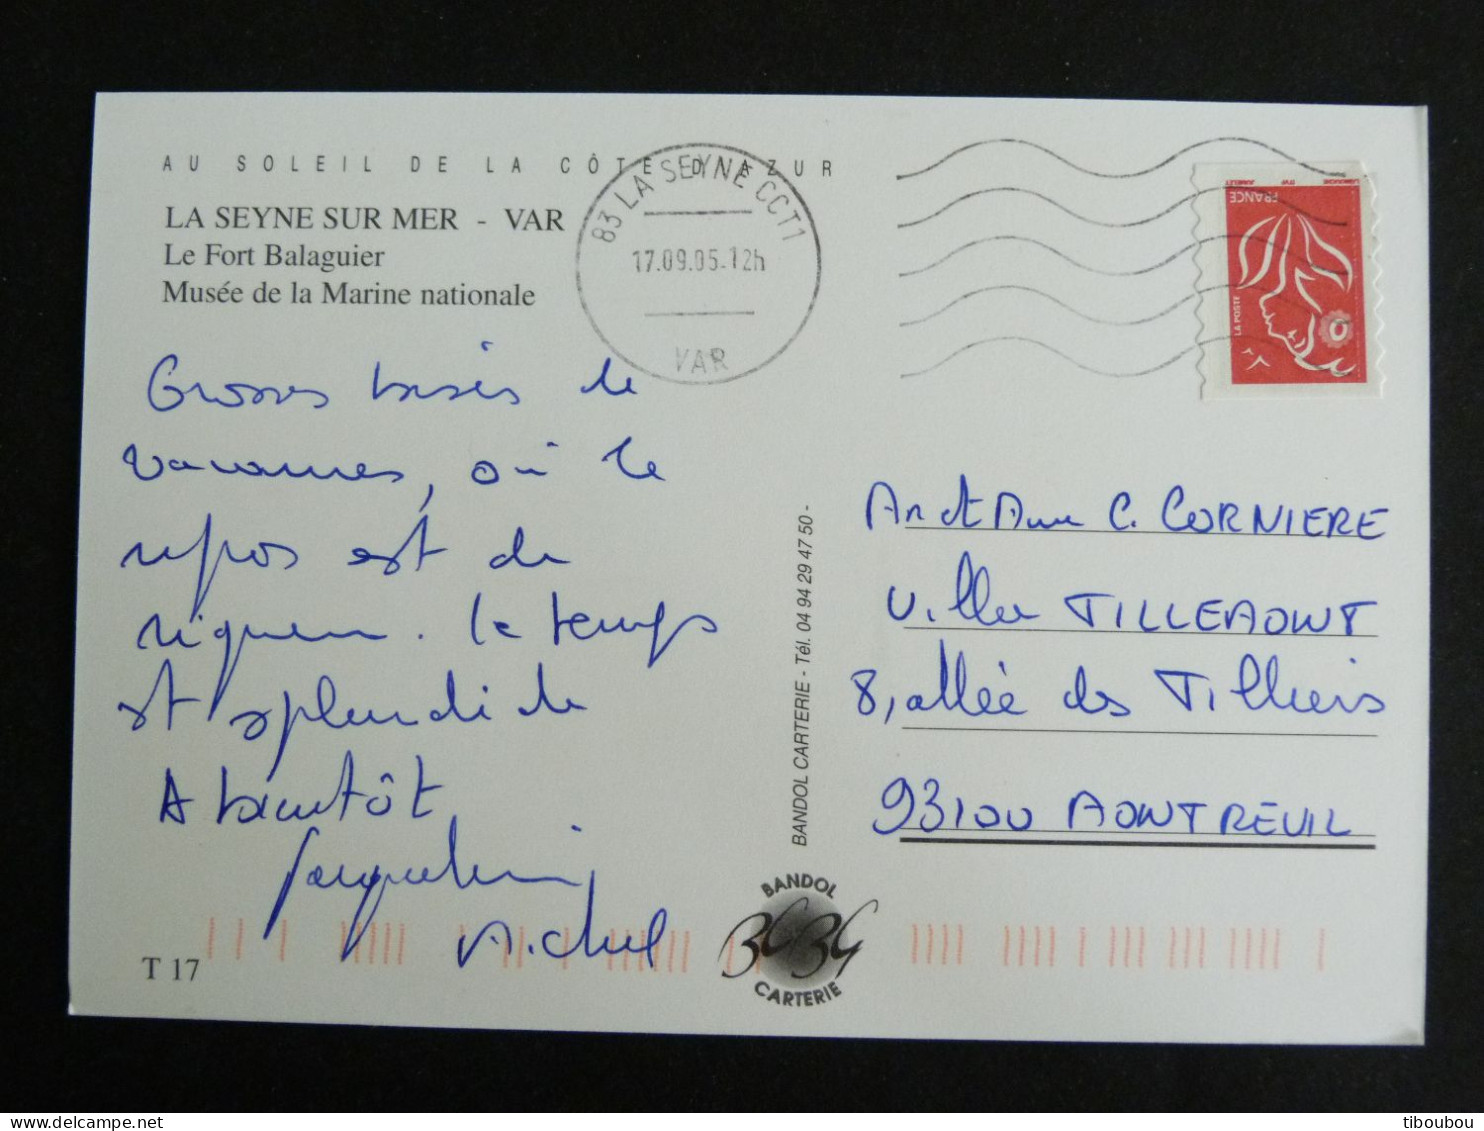 AU SOLEIL DE LA CÔTE D'AZUR
LA SEYNE SUR MER - VAR
Le Fort Balaguier
Musée de la Marine nationale
83 LA SEYNE CCT1
17.09.05-12h
VAR
FRANCE
LA POSTE
Grosses bises de
vacances, où le
repos est de
rigueur. Le temps
est splendide
A bientôt
Jacqueline
Michel
T 17
BANDOL CARTERIE - Tél. 04 94 29 47 50 -
BANDOL
CARTERIE
Mr et Mme C. CORNIERE
Villa TILLEMONT
8, allée des Tilleuls
93100 MONTREUIL
tiboubou